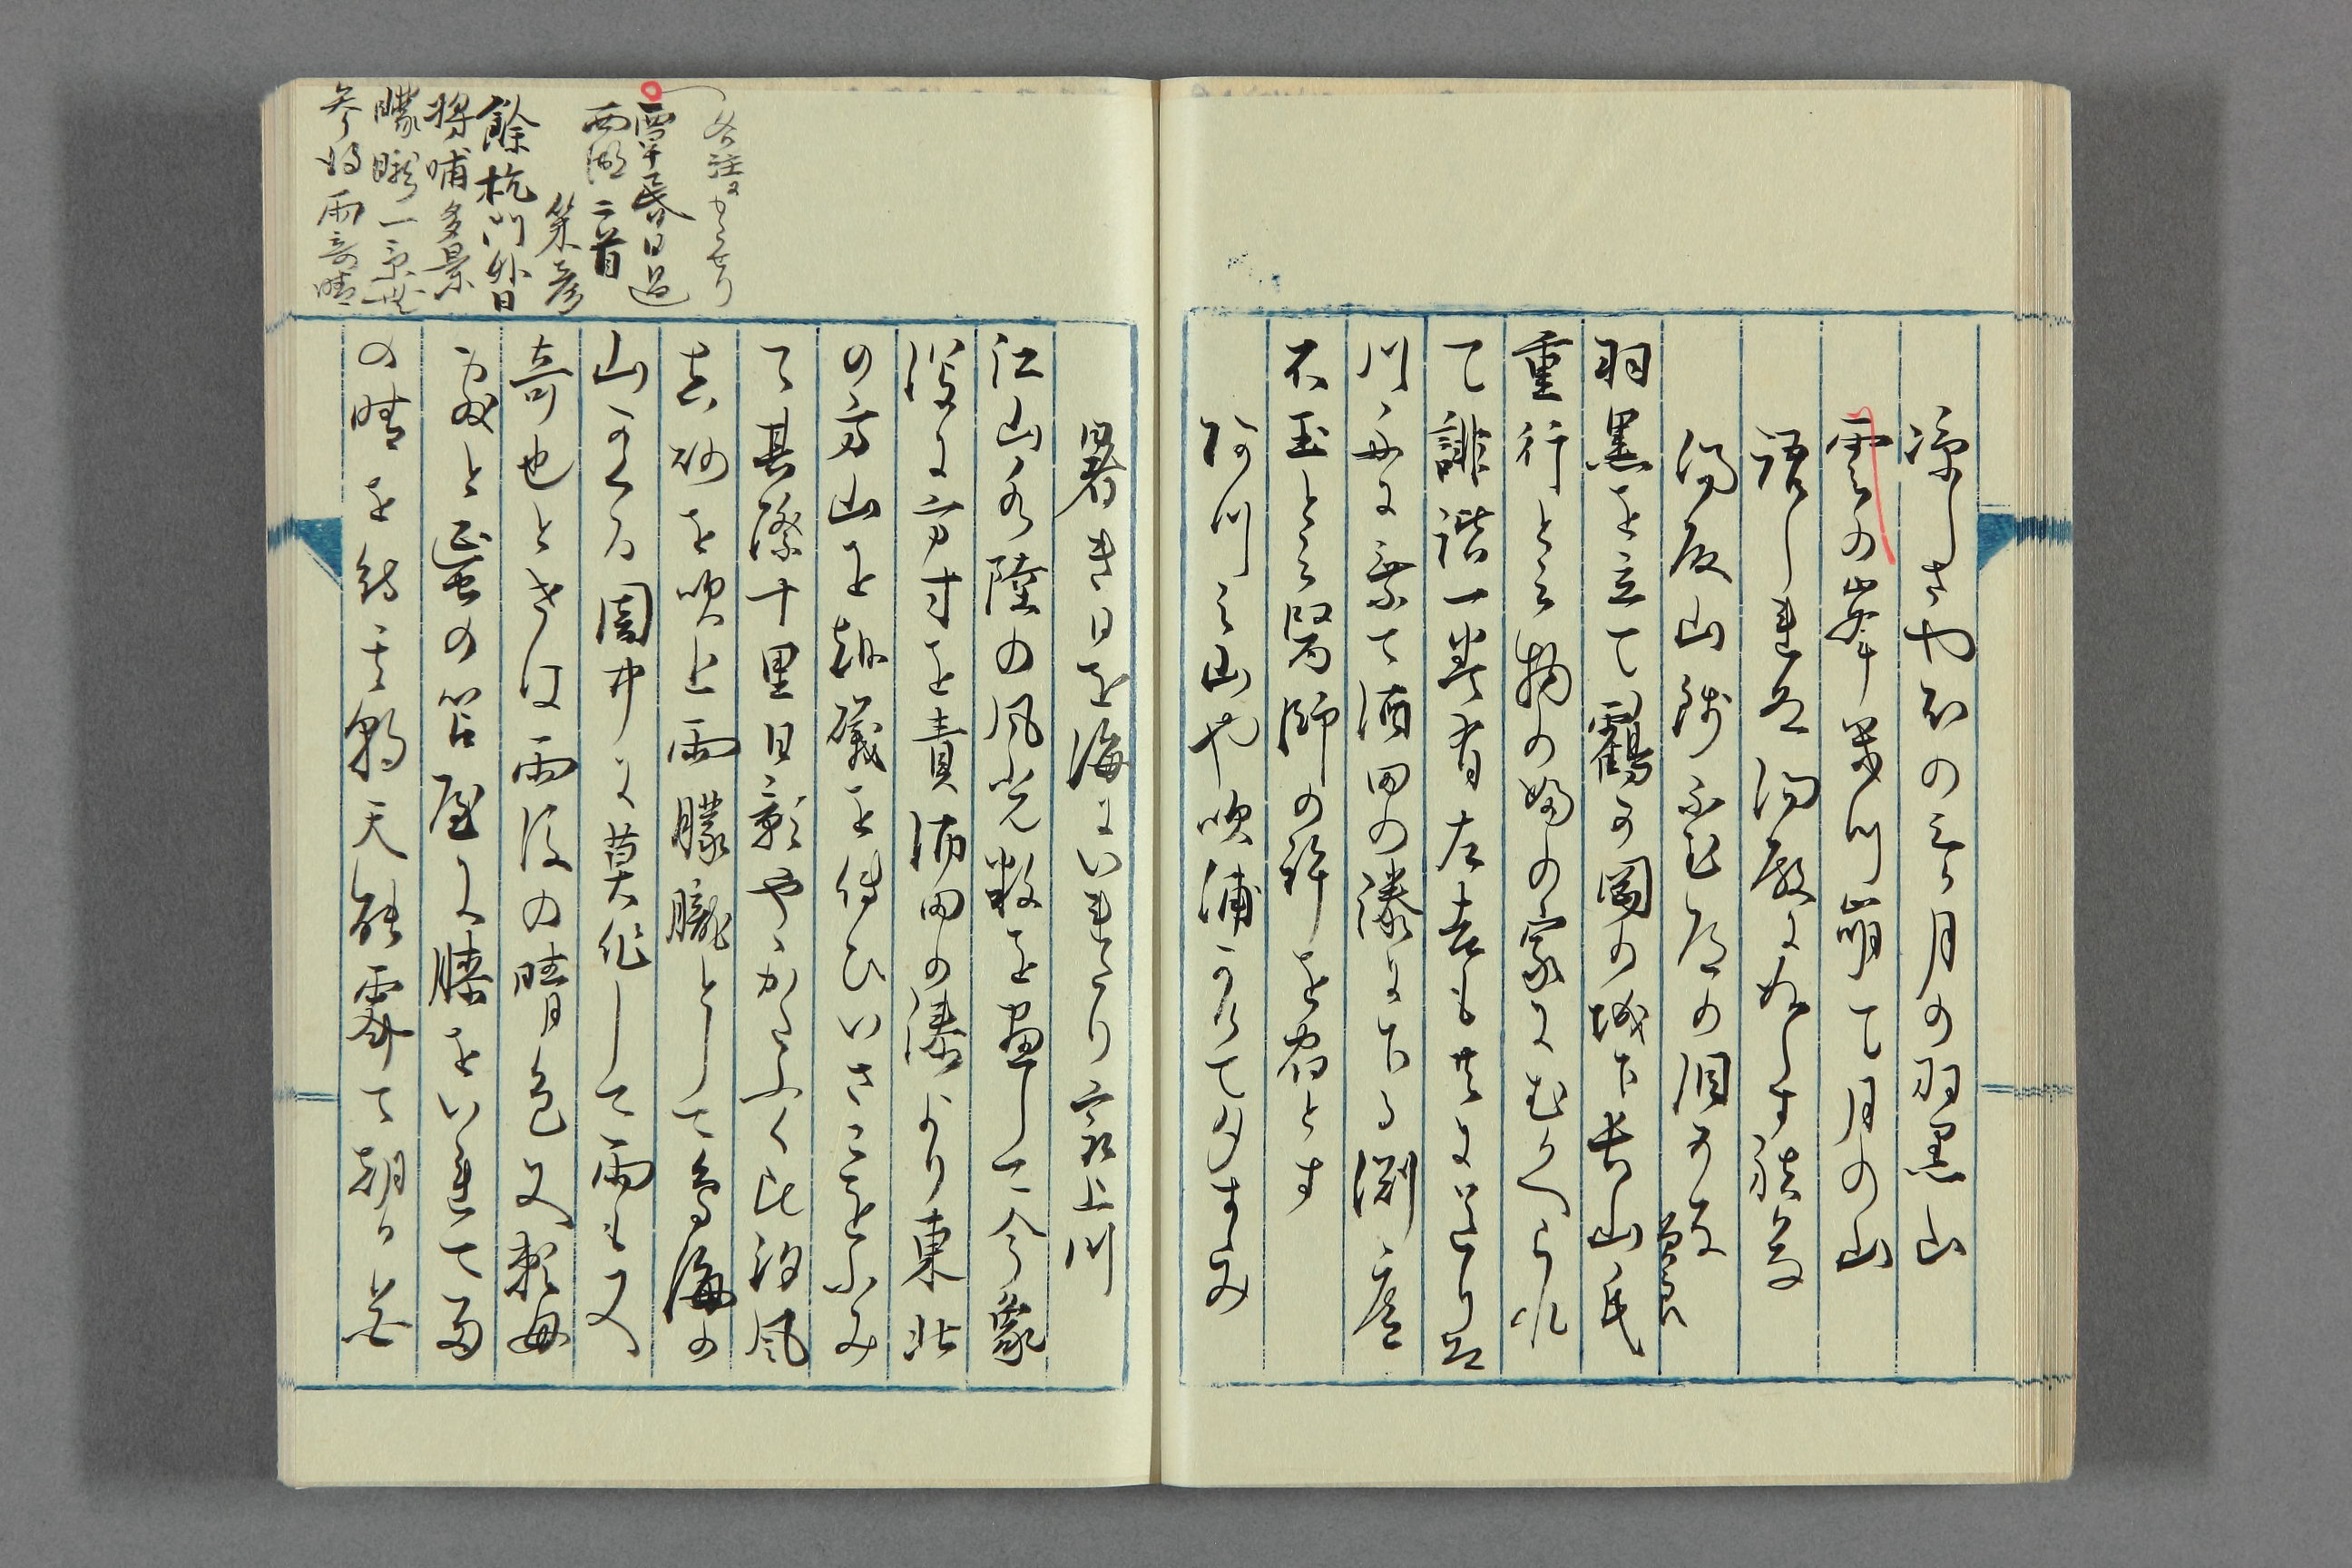 涼しさやほの三か月の羽黒山
雲の峯幾川崩て月の山
語られぬ湯殿にぬらす袂哉
湯殿山銭ふむ道の泪かな　曽良
羽黒を立て鶴か岡の城下長山氏
重行と云物のふの家にむかへられ
て誹諧一巻有左吉も共に送りぬ
川舟に乗て酒田の湊に下る渕庵
不玉と云醫師の許を宿とす
あつみ山や吹浦かけて夕すゝみ
暑き日を海にいれたり最上川
江山水陸の風光数を尽して今象
泻に方寸を責酒田の湊より東北
の方山を越礒を伝ひいさこをふみ
て其際十里日影やゝかたふく比汐風
真砂を吹上雨朦朧として鳥海の
山かくる闇中に莫作して雨も又
奇也とせは雨後の晴色又頼母
敷と蜑の笘屋に膝をいれて雨
の晴を待其朝天能霽て朝日花
各注にかくせり
雪昏日過
西湖二首
策彦
餘杭門外日
将哺多景
朦朧一景無
参得雨奇晴